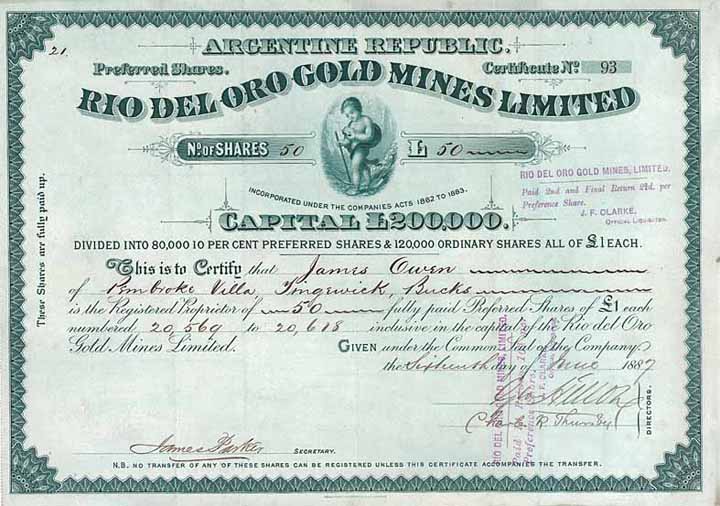 21.
ARGENTINE REPUBLIC.
Preferred Shares.
Certificate No. 93
RIO DEL ORO GOLD MINES LIMITED
No. OF SHARES 50
£ 50
INCORPORATED UNDER THE COMPANIES ACTS 1862 TO 1883.
CAPITAL £200,000.
DIVIDED INTO 80,000 10 PER CENT PREFERRED SHARES & 120,000 ORDINARY SHARES ALL OF £1 EACH.
This is to Certify that James Owen
of Pembroke Villa, Tingewick, Bucks
is the Registered Proprietor of 50 fully paid Preferred Shares of £1 each
numbered 20,569 to 20,618 inclusive in the capital of the Rio del Oro
Gold Mines Limited. GIVEN under the Common Seal of the Company
the Sixteenth day of June 1887
Charles R Thursby
DIRECTORS.
James Parker
SECRETARY.
N.B. NO TRANSFER OF ANY OF THESE SHARES CAN BE REGISTERED UNLESS THIS CERTIFICATE ACCOMPANIES THE TRANSFER.
These Shares are fully paid up.
RIO DEL ORO GOLD MINES, LIMITED.
Paid 2nd and Final Return per
Preference Share.
J. F. CLARKE,
OFFICIAL LIQUIDATOR.
RIO DEL ORO GOLD MINES, LIMITED.
Paid
Preference Share.
J. F. CLARKE